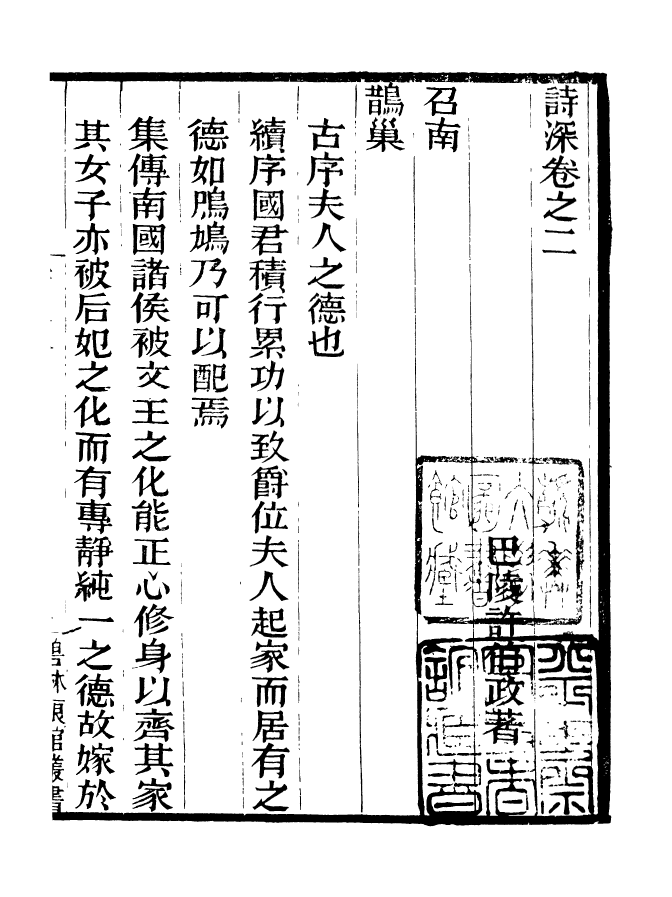 詩深卷之二
巴陵許伯政著
召南
鵲巢
古序夫人之德也
續序國君積行累功以致爵位夫人起家而居有之
德如鳲鳩乃可以配焉
集傳南國諸侯被文王之化能正心修身以齊其家
其女子亦被后妃之化而有專靜純一之德故嫁於
碧琳瑯館叢書